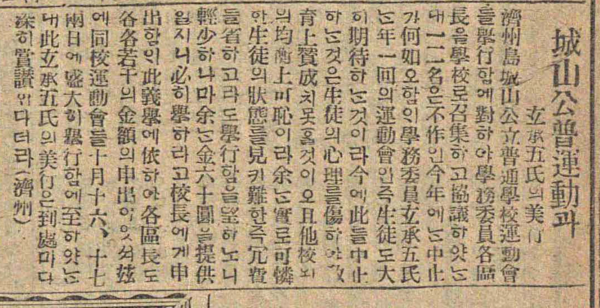 城山公普運動과
玄承五氏의美行
濟州島城山公立普通學校運動會
를擧行함에對하야學務委員各區
長을學校로召集하고協議하얏는
대一二名은不作인今年에는中止
가何如오함이學務委員玄承五氏
는年一回의運動會인즉生徒도大
히期待하는것이라今에此를中止
하는것은生徒의心理를傷하야敎
育上賛成치못홀것이오且他校와
의均衡上恥이라余는實로可憐
한生徒의狀態를見키難한즉冗費
를省하고라도擧行함을望하노니
輕少하나마余는金六十圓을提供
지니必히擧하라고校長에게申
出함이此義擧에依하야各區長도
各各若干의金額의申出이잇서玆
에同校運動會를十月十六、十七
兩日에盛大히擧行함에至하얏는
대此玄承五氏의美行은到處마다
深히賞讃다더라(濟州)